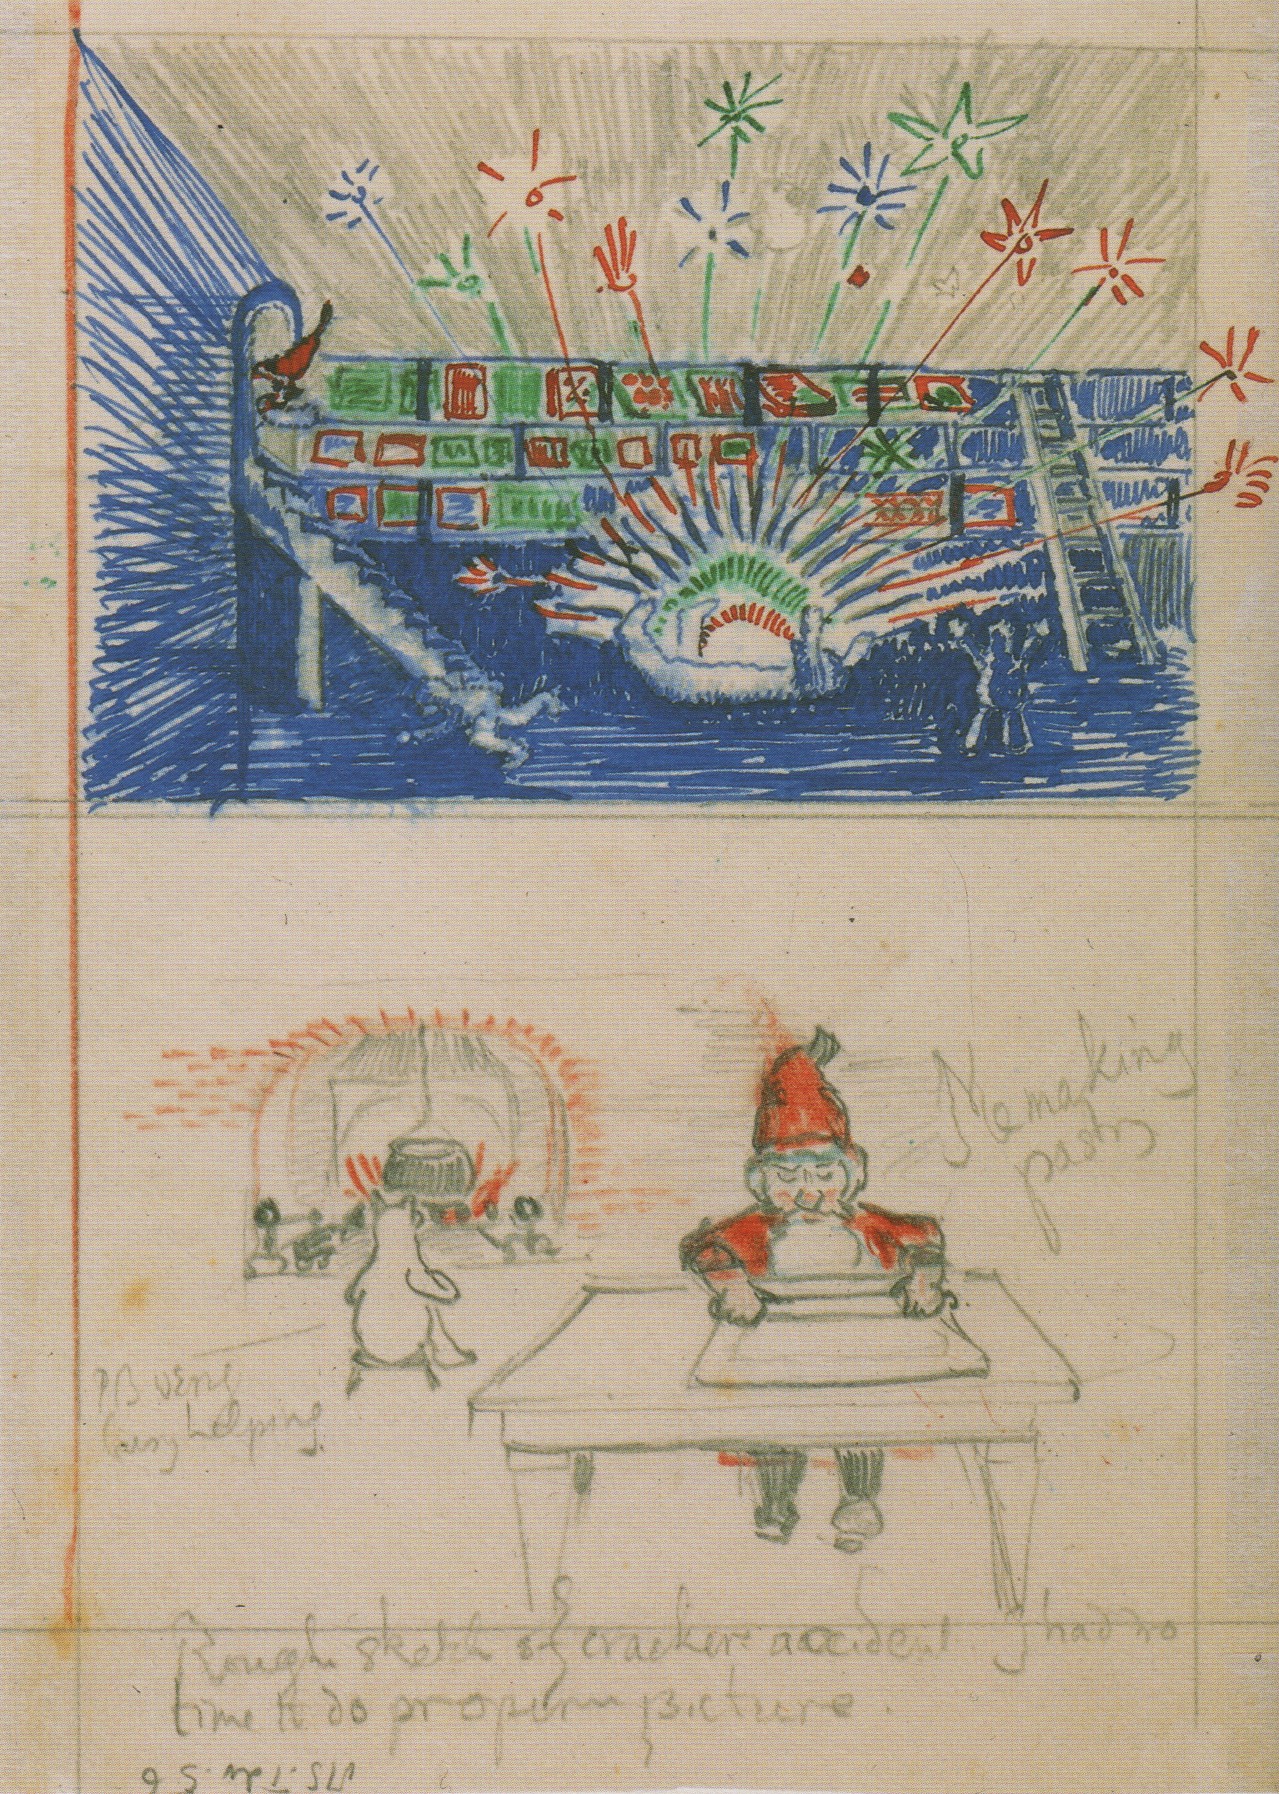 Me making
pastry
PB very
busy helping
Rough sketch of cracker accident I had no
time to do proper picture.